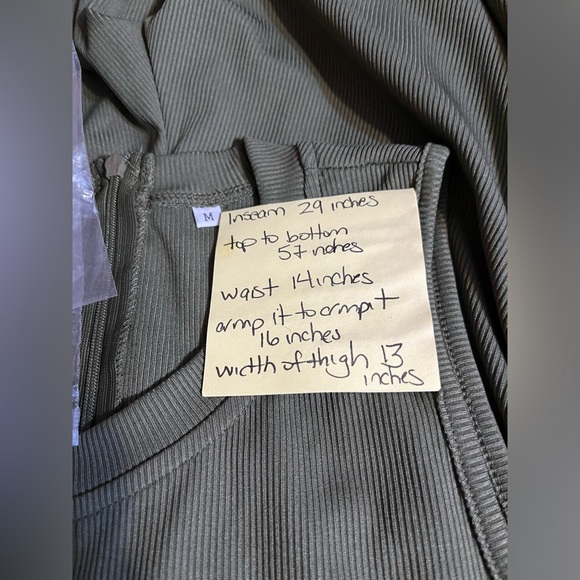 M
Inseam 29 inches
top to bottom
57 inches
waist 14 inches
armp it to armpit
16 inches
width of thigh 13
inches